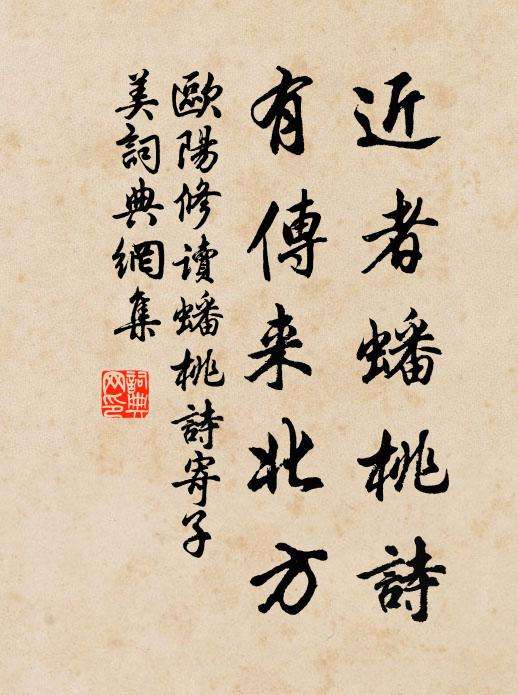 近者蟠桃詩
有傳来北方
歐陽修讀蟠桃詩寄子
美詞典網集
詞典
网印